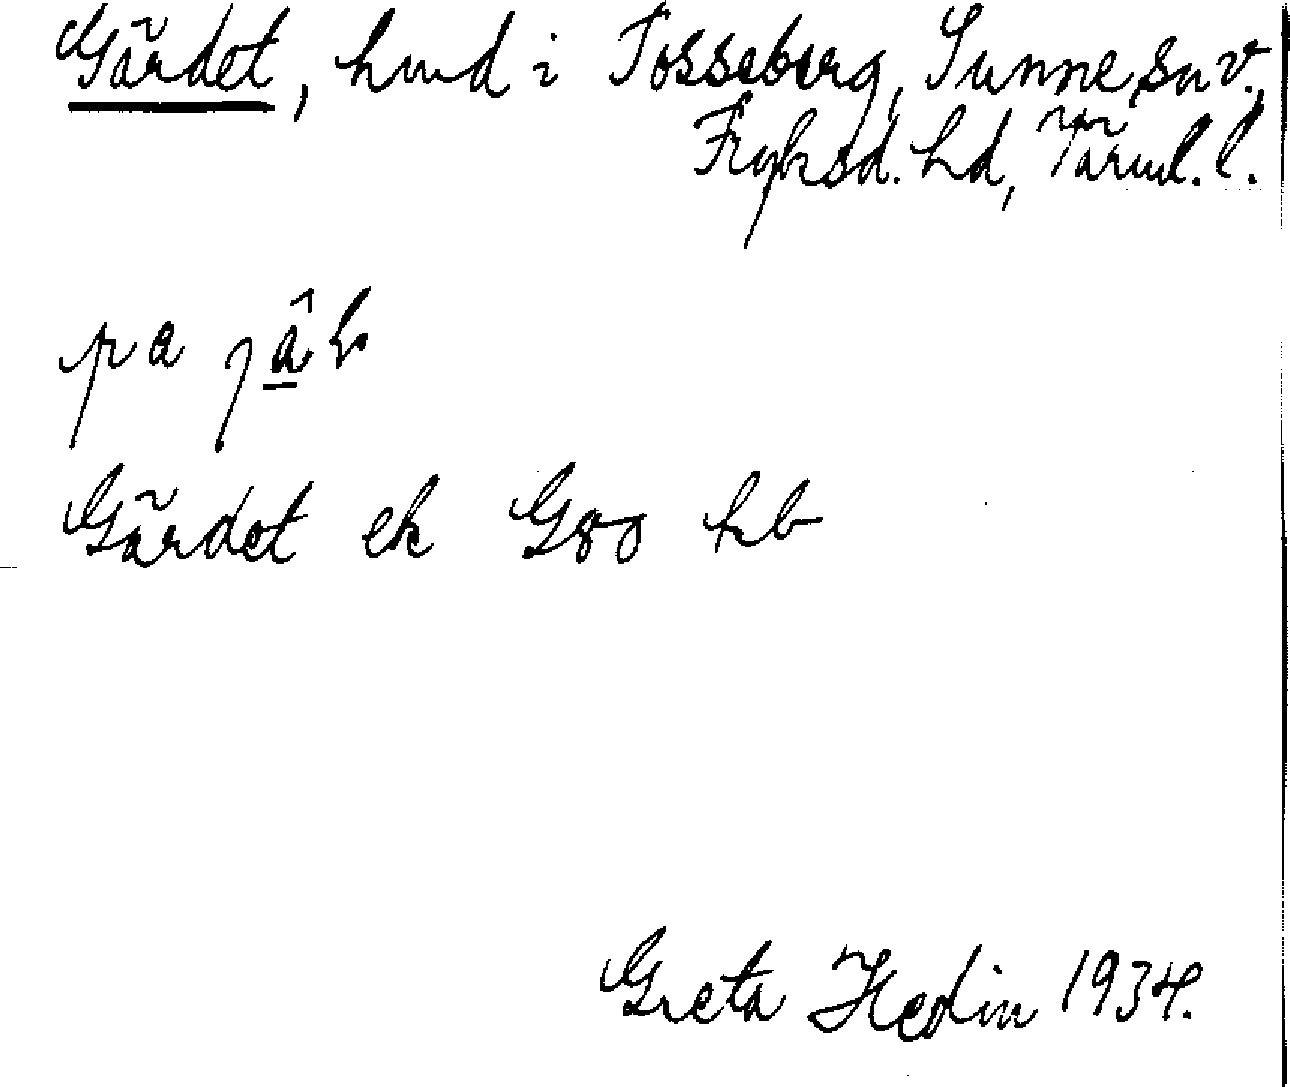 Gärdet, hmd i Tosseberg, Sunne sn v.,
Fryksd. hd, Värml. l.
pa
Gärdet ek G80 hb
Greta Hedin 1934.